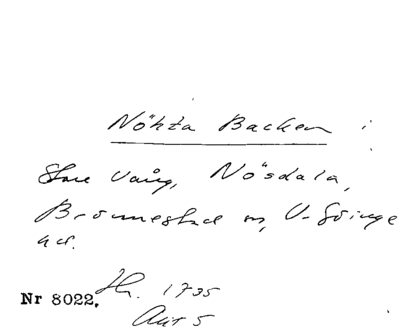 Nöhta Backen i
Stora Vång, Nösdala,
Brönnestad sn, V. Göinge
hd.
Nr 8022. Hr. 1735
Akt 5